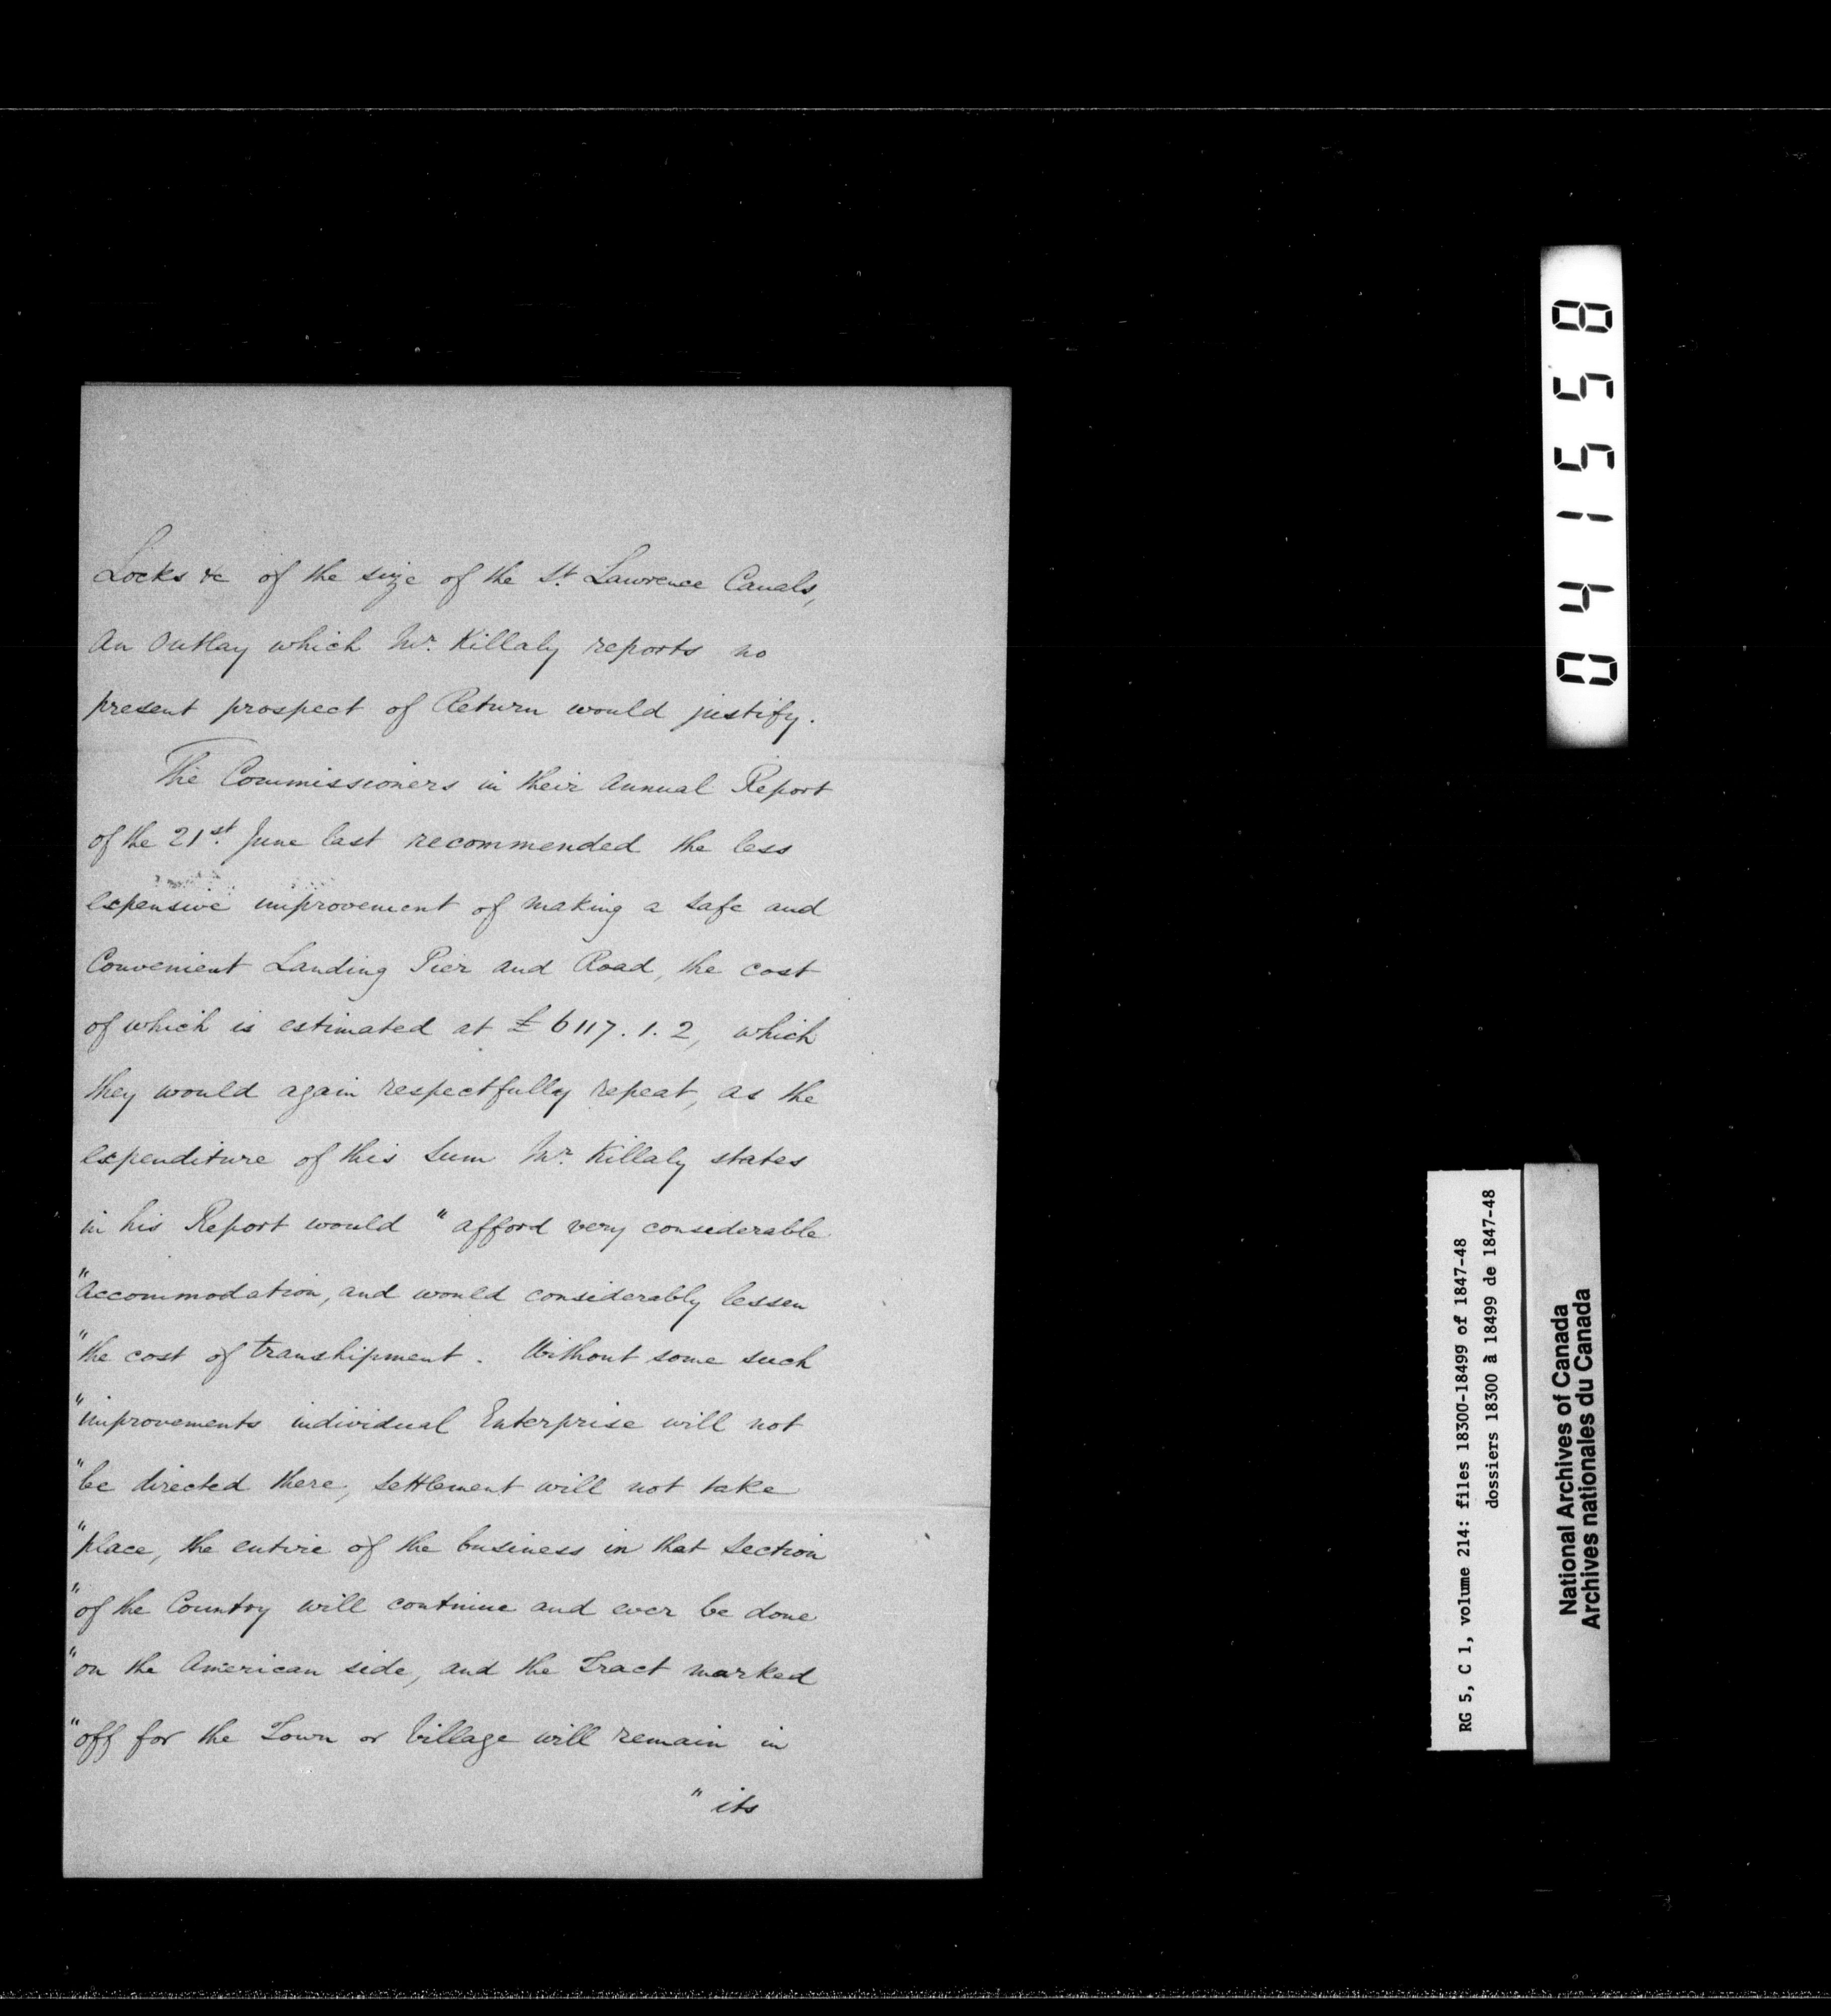 Locks &c of the size of the St. Lawrence Canals,
An Outlay which Mr. Killaly reports no
present prospect of Return would justify.
The Commissioners in their Annual Report
of the 21st. June last recommended the less
expensive improvement of making a safe and
Convenient Landing Pier and Road, the cost
of which is estimated at £6117.1.2, which
they would again respectfully repeat, as the
expenditure of this Sum Mr. Killaly states
in his Report would "afford very considerable
"Accommodation, and would considerably lessen
"the cost of transhipment. Without some such
"improvements individual Enterprise will not
"be directed there, Settlement will not take
"place, the entire of the business in that Section
"of the Country will continue and ever be done
"on the American side, and the Tract marked
"off for the Town or Village will remain in
"its
041558
RG 5, C 1, volume 214: files 18300-18499 of 1847-48
dossiers 18300 à 18499 de 1847-48
National Archives of Canada
Archives nationales du Canada